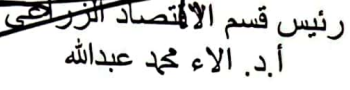 رئيس قسم الاقتصاد الزراعي
أ.د. الاء محمد عبدالله